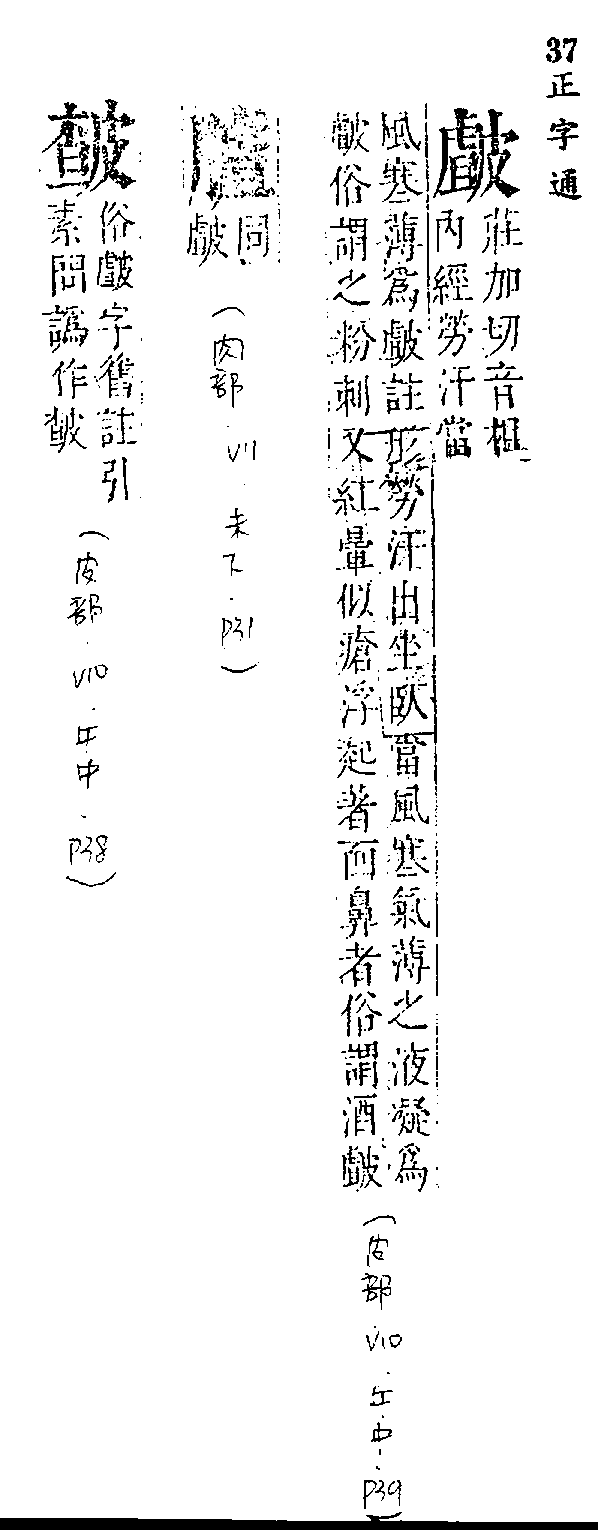 37正字通
皻
莊加切音柤
內經勞汗當
風寒薄爲皻註形勞汗出坐臥當風寒氣薄之液凝爲
皻俗謂之粉刺又紅暈似瘡浮起著面鼻者俗謂酒皻
(皮部.V10.午中.P39)
同
皻
(肉部.V11.未下.P31)
皶
俗皻字舊註引
素問譌作皶
(皮部.V10.午中.P38)